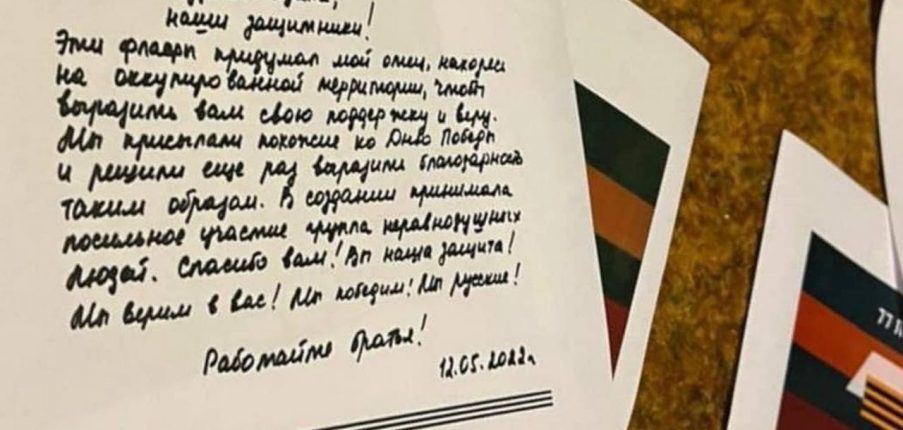 наши защитники!
Эти флаги придумал мой отец, находясь
на оккупированной территории, чтобы
выразить вам свою поддержку и веру.
Мы присылали похожие ко Дню Победы
и решили еще раз выразить благодарность
таким образом. В создании принимала
посильное участие группа неравнодушных
людей. Спасибо вам! Вы наша защита!
Мы верим в вас! Мы победим! Мы русские!
Работайте братья!
12.05.2022г.
77